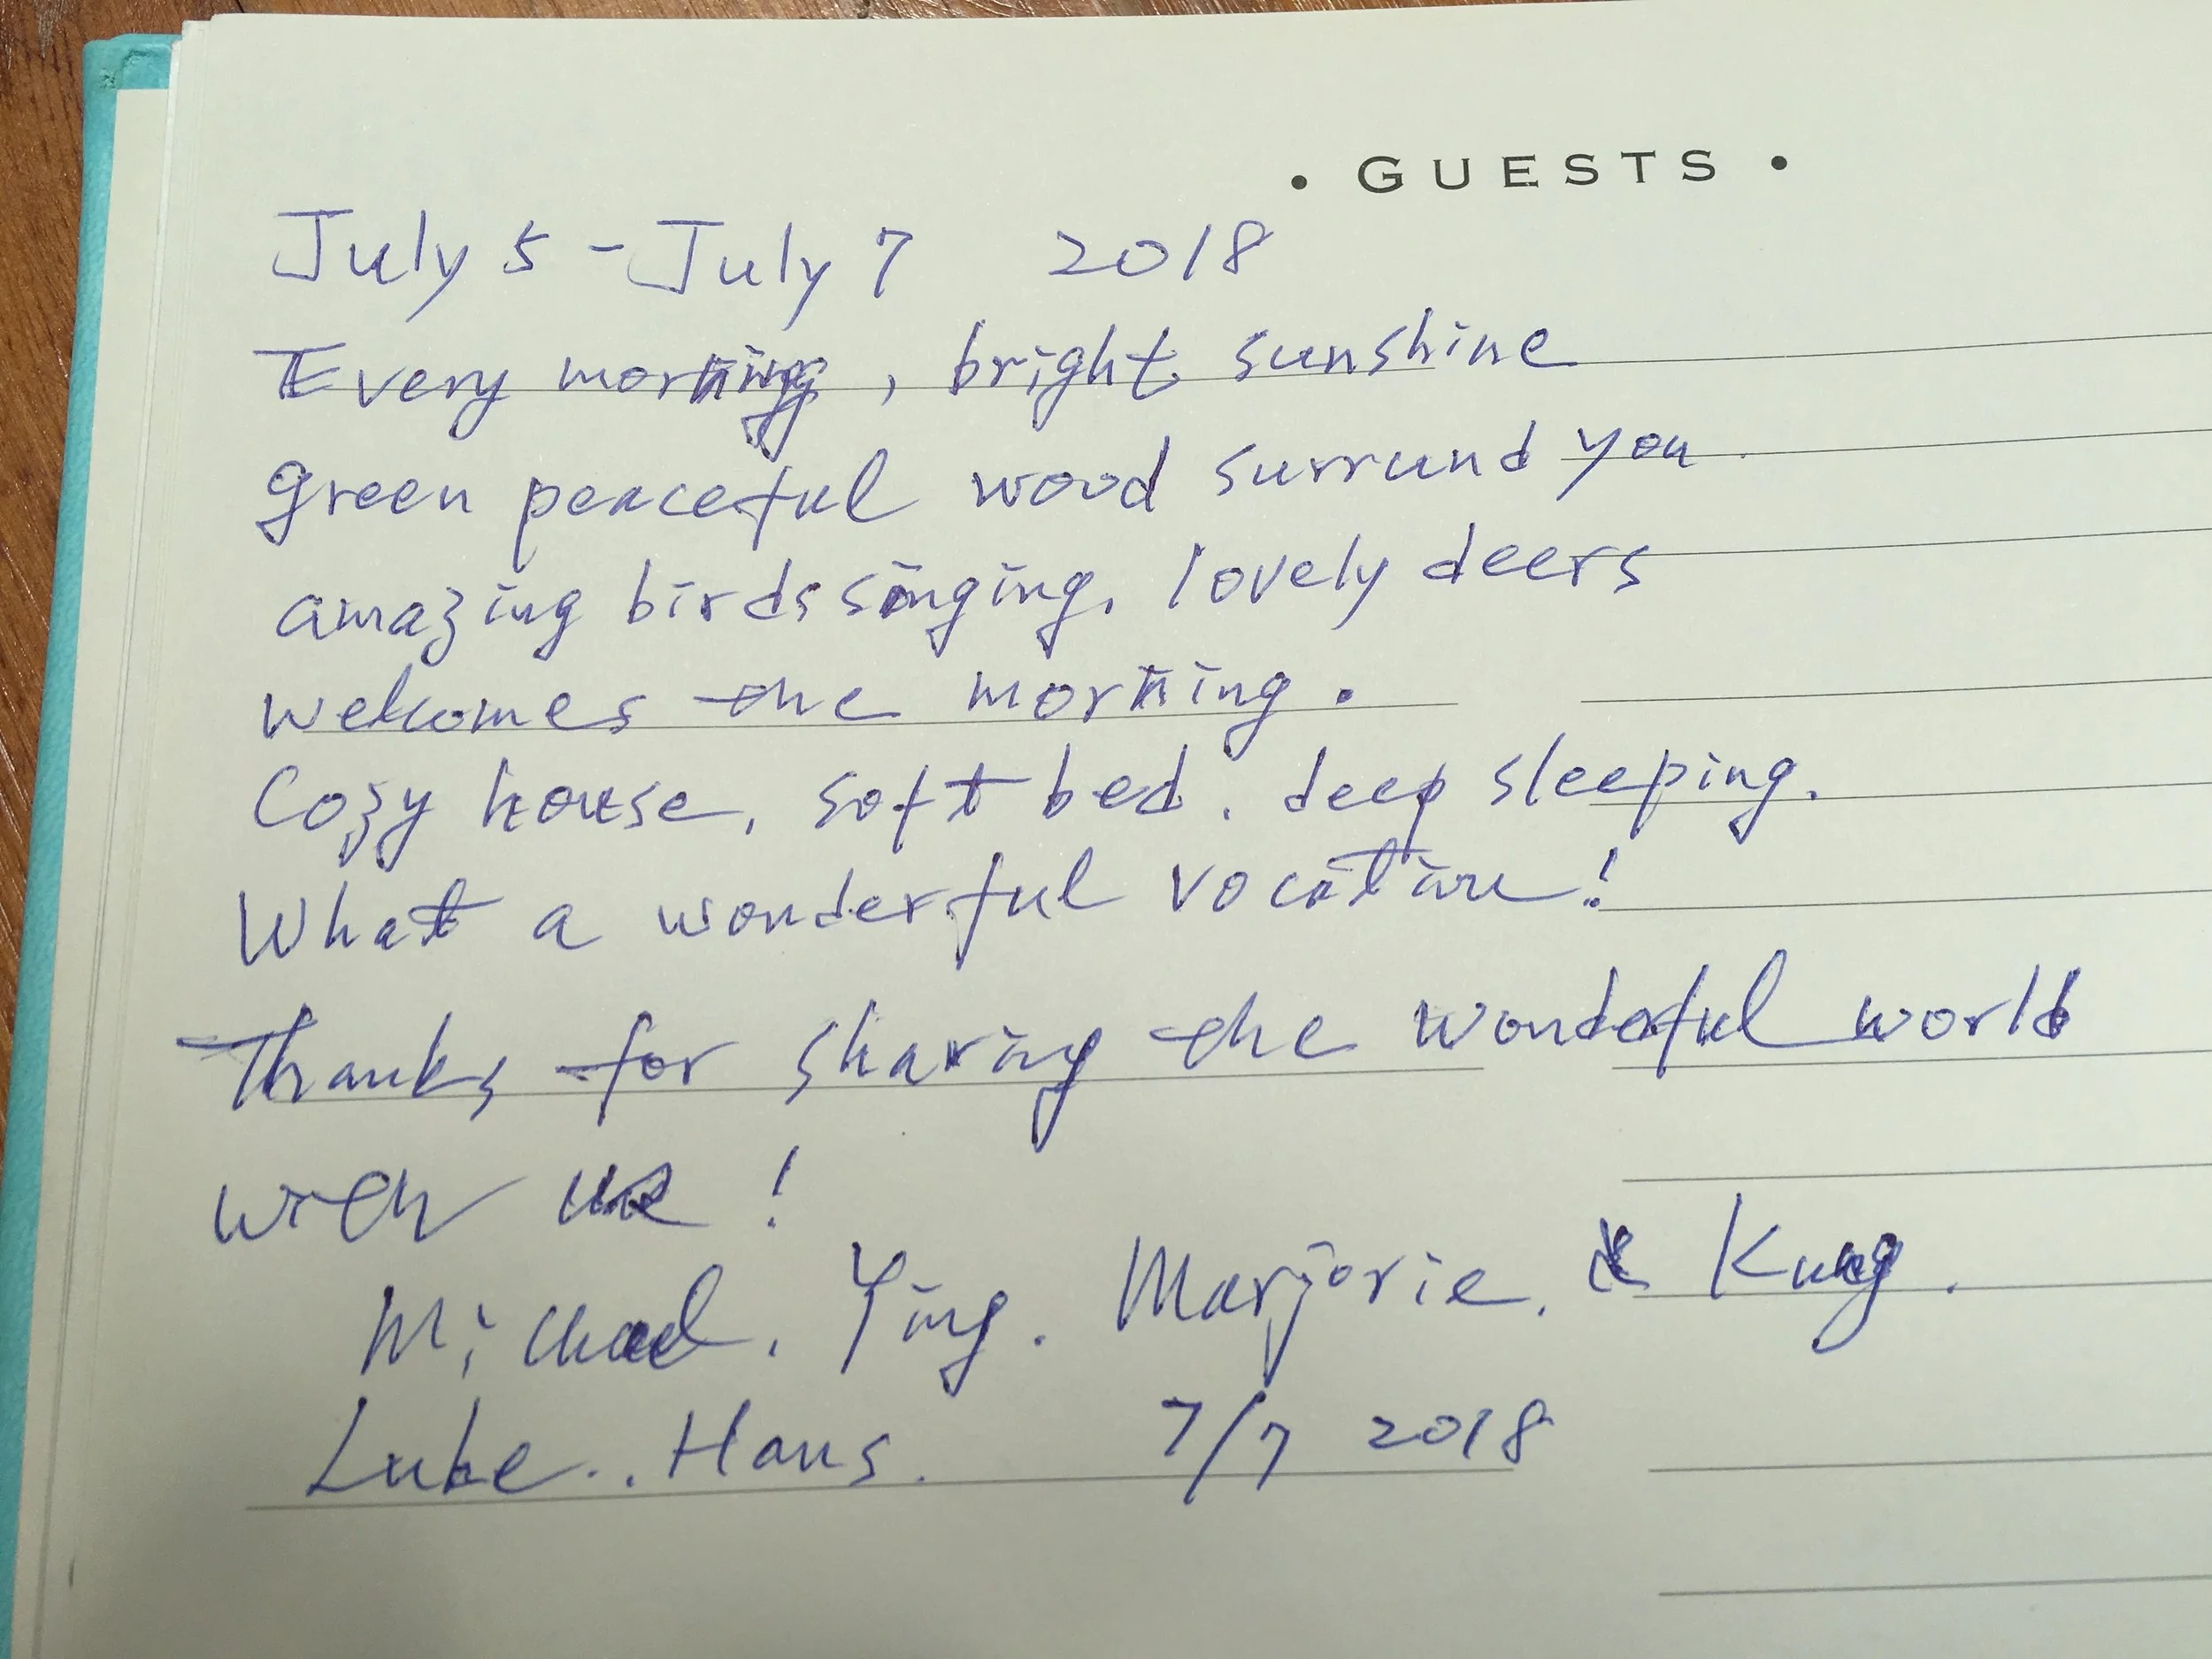 • GUESTS •
July 5 - July 7 2018
Every morning, bright sunshine
green peaceful wood surrund you.
amazing birds singing, lovely deers
welcomes the morning.
Cozy house, soft bed, deep sleeping.
What a wonderful vocation!
Thanks for sharing the wonderful world
with us!
Michael, Ying. Marjorie, & Kung.
Luke.. Hans. 7/7 2018